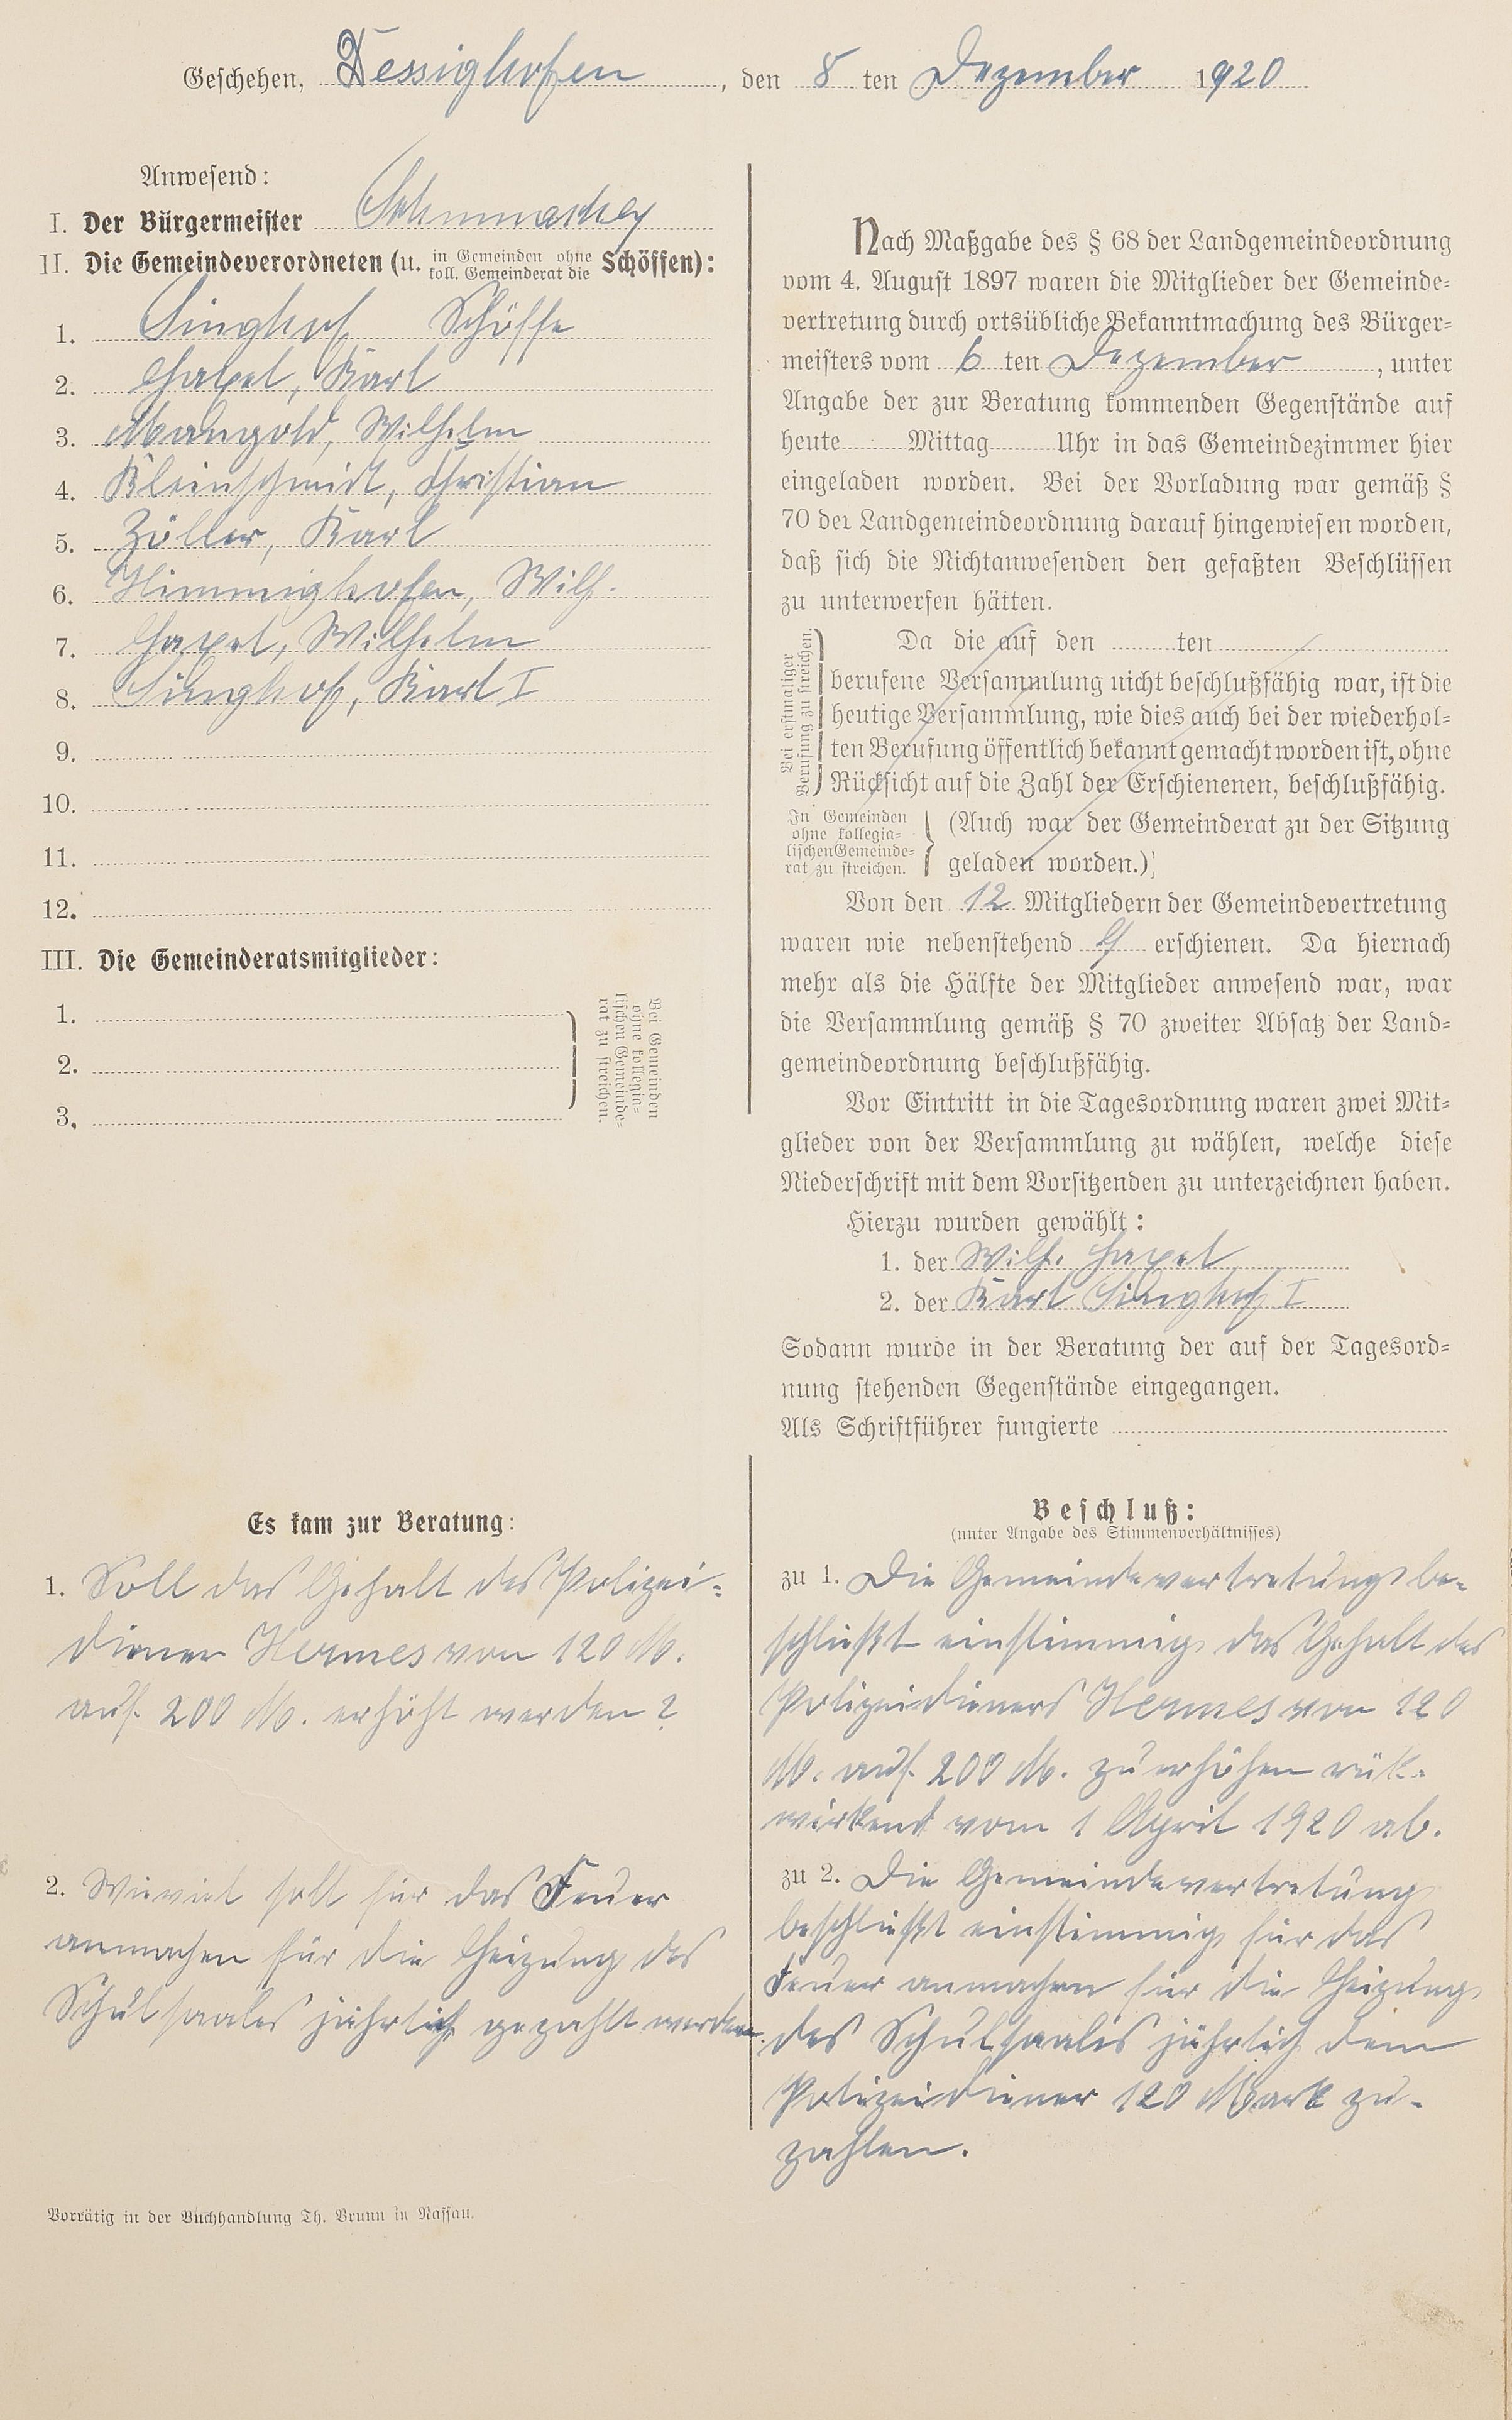 Geschehen, Dessighofen, den 8 ten Dezember 1920
Anwesend:
I. Der Bürgermeister
II. Die Gemeindeverordneten (u. in Gemeinden ohne koll. Gemeinderat die Schöffen):
1. Singhof Schöffe
2. Hapel, Karl
3. Mangold, Wilhelm
4. Kleinschmidt, Christian
5. Zöller, Karl
6. Himmighofen, Wilh.
7. Hapel, Wilhelm
8. Singhof, Karl I
9.
10.
11.
12.
III. Die Gemeinderatsmitglieder:
1.
2.
3.
Bei Gemeinden
ohne kollegia-
lischen Gemeinde-
rat zu streichen.
Nach Maßgabe des § 68 der Landgemeindeordnung
vom 4. August 1897 waren die Mitglieder der Gemeinde-
vertretung durch ortsübliche Bekanntmachung des Bürger-
meisters vom 6 ten Dezember, unter
Angabe der zur Beratung kommenden Gegenstände auf
heute Mittag Uhr in das Gemeindezimmer hier
eingeladen worden. Bei der Vorladung war gemäß §
70 der Landgemeindeordnung darauf hingewiesen worden,
daß sich die Nichtanwesenden den gefaßten Beschlüssen
zu unterwerfen hätten.
Bei erstmaliger
Berufung zu streichen.
Da die auf den ten
berufene Versammlung nicht beschlußfähig war, ist die
heutige Versammlung, wie dies auch bei der wiederhol-
ten Berufung öffentlich bekannt gemacht worden ist, ohne
Rücksicht auf die Zahl der Erschienenen, beschlußfähig.
In Gemeinden
ohne kollegia-
lischen Gemeinde-
rat zu streichen.
(Auch war der Gemeinderat zu der Sitzung
geladen worden.)
Von den 12 Mitgliedern der Gemeindevertretung
waren wie nebenstehend 9 erschienen. Da hiernach
mehr als die Hälfte der Mitglieder anwesend war, war
die Versammlung gemäß § 70 zweiter Absatz der Land-
gemeindeordnung beschlußfähig.
Vor Eintritt in die Tagesordnung waren zwei Mit-
glieder von der Versammlung zu wählen, welche diese
Niederschrift mit dem Vorsitzenden zu unterzeichnen haben.
Hierzu wurden gewählt:
1. der Wilh. Hapel
2. der Karl Singhof I
Sodann wurde in der Beratung der auf der Tagesord-
nung stehenden Gegenstände eingegangen.
Als Schriftführer fungierte
Es kam zur Beratung:
1. Soll das Gehalt des Polizei-
diener Hermes von 120 M.
auf 200 M. erhöht werden?
2. Wieviel soll für das Feuer
anmachen für die Heizung des
Schulsaales jährlich gezahlt werden.
Beschluß:
(unter Angabe des Stimmenverhältnisses)
zu 1. Die Gemeindevertretung be-
schließt einstimmig das Gehalt des
Polizeidieners Hermes von 120
M. auf 200 M. zu erhöhen rük-
wirkend vom 1 April 1920 ab.
zu 2. Die Gemeindevertretung
beschließt einstimmig für das
Feuer anmachen für die Heizung
des Schulsaales jährlich dem
Polizeidiener 120 Mark zu-
zahlen.
Vorrätig in der Buchhandlung Th. Brunn in Nassau.